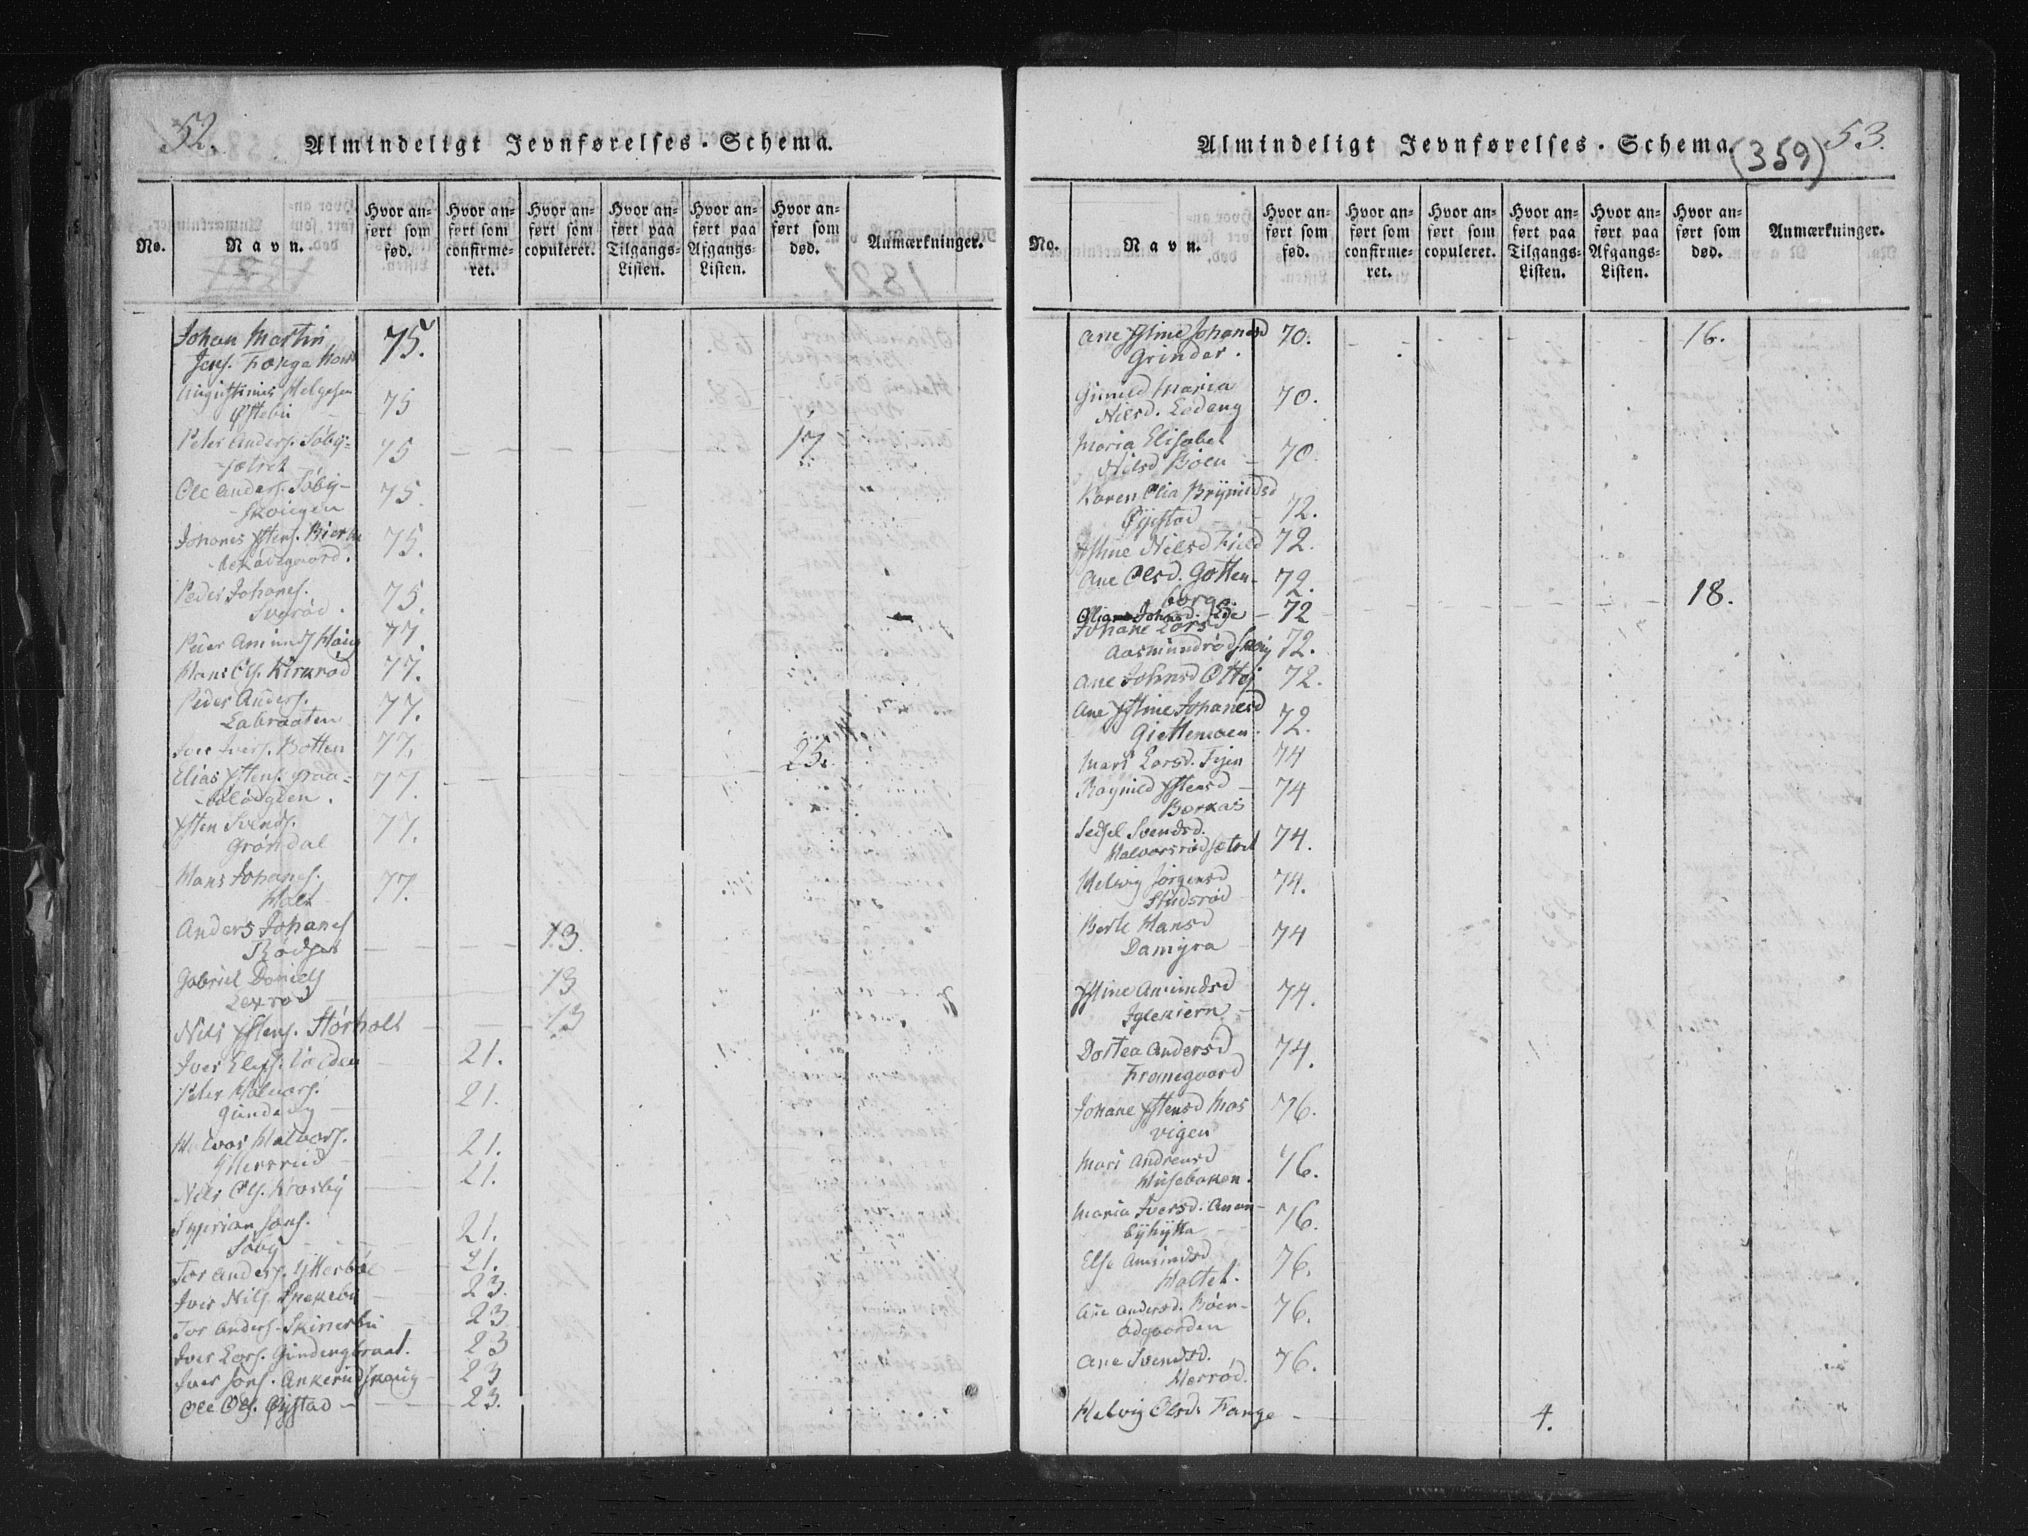 52.
Almindeligt Jevnførelses-Schema.
No.
Navn.
Hvor anført som fød.
Hvor anført som confirmeret.
Hvor anført som copuleret.
Hvor anført paa Tilgangs-Listen.
Hvor anført paa Afgangs-Listen.
Hvor anført som død.
Anmærkninger.
Johan Martin
Jens. Fange 75.
Augustinus Helgesen
Østebu 75
Peter Anders. Søby-
sætret 75 17
Ole Anders. Søby-
Skougen 75.
Johanes Xstens. Bierke
75.
Peder Johanes.
Sverød. 75.
Peder Amunds Houg 77.
Hans Ols. Kirkrød 77.
Peder Anders.
Labraaten 77.
Iver Ivers. Botten 77.
Elias Xstens. Graa-
77. 25.
Xsten Svends.
Grøndal 77.
Hans Johanes.
Holt 77.
Anders Johanes
Rødser 13.
Gabriel Daniels
Lexrød 13
Nils Xstens. Størholt 13
Iver Elefs. Volden 21.
Peter Halvors.
Gundeng 21.
Halvor Halvors.
Ytterrud 21.
Nils Ols. Krosby 21.
Syprian Jons.
Søby 21.
Tor Anders. Ytterbøe 21.
Iver Nils. Snekeby 23.
Tor Anders. Skinerbu 23
Iver Lars. Gundengbraat. 23
Iver Jons. Ankerudskoug 23
Ole Ols. Øystad 23.
Almindeligt Jevnførelses-Schema.
(359)
53.
No.
Navn.
Hvor anført som fød.
Hvor anført som confirmeret.
Hvor anført som copuleret.
Hvor anført paa Tilgangs-Listen.
Hvor anført paa Afgangs-Listen.
Hvor anført som død.
Anmærkninger.
Ane Xstine Johanesd
Grinder. 70. 16.
Gunild Maria
Nilsd. Lodeng 70.
Maria Elisabet
Nilsd Bøen 70
Karen Olia Brynildsd
Øystad 72.
Xstine Nilsd Field 72.
Ane Olsd. Gotten-
borg. 72.
Johansd. Ede 72 18.
Johane Larsd
Aasmundrødskoug 72.
Ane Johnsd Ottej 72.
Ane Xstine Johanesd
Giettemoen 72.
Mari Larsd. Tejen 74
Ragnild Xstensd
Borkas 74
Sedsel Svendsd.
Halvorsrødsætret 74.
Helvig Jørgensd
Studsrød 74.
Berte Hansd
Damyra 74
Xstine Amundsd
Iglekiern 74.
Dortea Andersd
Framegaard 74.
Johane Xstensd Mos
vigen 76.
Mari Andreasd
Husebaken. 76.
Maria Iversd.
byhytta 76.
Else Amundsd
Holtet. 76.
Ane Andersd. Bøen-
ødgaarden 76.
Ane Svendsd.
Merrød. 76.
Helvig Olsd. Fange 4.